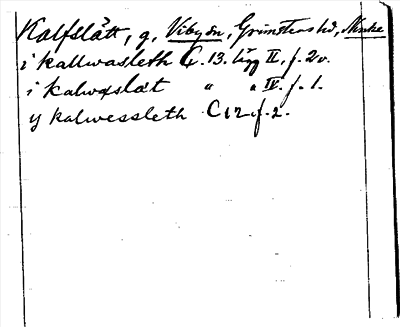 Kalfslätt, g, Vibyön, Grimstens hd, Nerike
i kallwasleth C. 13. lägg II, f. 2v.
i kalwaslät " " IV. f. 1.
y kalwessleth C 12 f. 2.